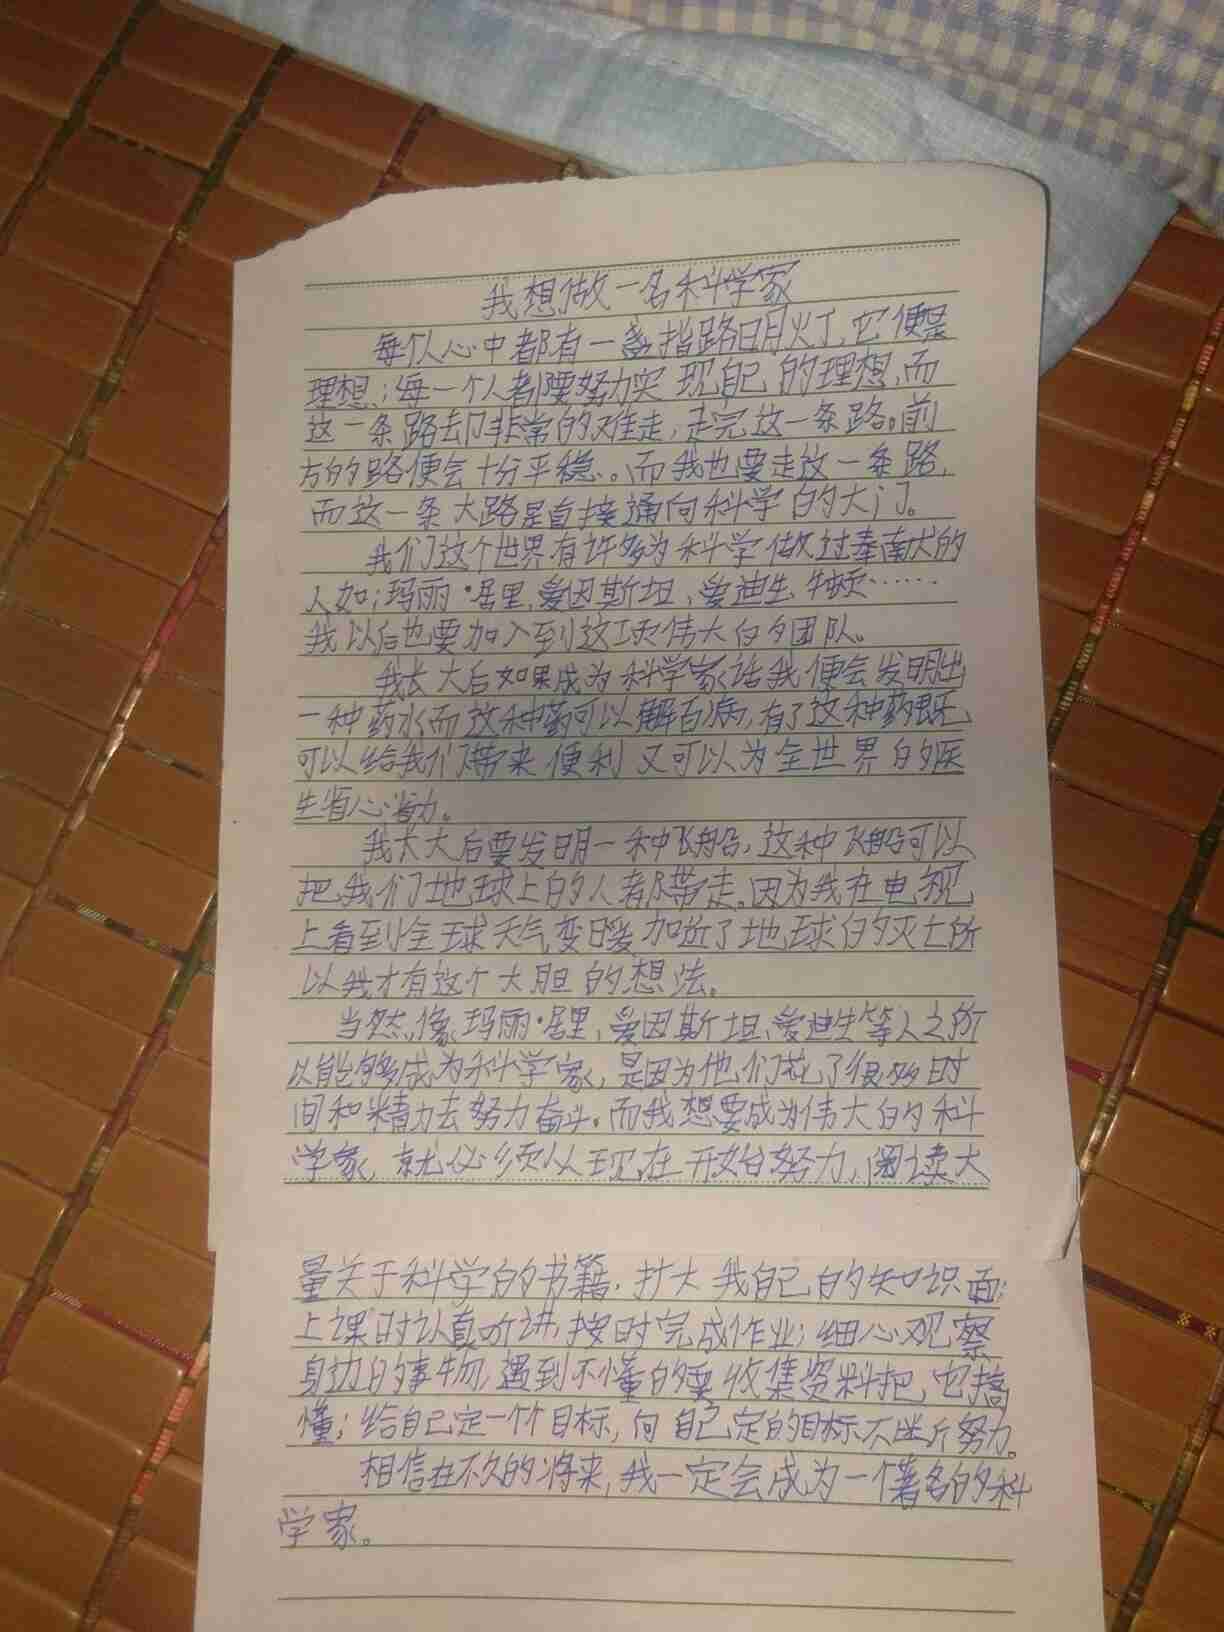 我想做一名科学家
每个人心中都有一盏指路明灯,它便是
理想;每一个人都要努力实现自己的理想,而
这一条路却非常的难走,走完这一条路。前
方的路便会十分平稳。而我也要走这一条路,
而这一条大路是直接通向科学的大门。
我们这个世界有许多为科学做过奉献的
人如:玛丽·居里、爱因斯坦、爱迪生、牛顿……
我以后也要加入到这项伟大的团队。
我长大后如果成为科学家话我便会发明出
一种药水而这种药可以解百病,有了这种药既
可以给我们带来便利又可以为全世界的医
生省心省力。
我长大后要发明一种飞船,这种飞船可以
把我们地球上的人都带走。因为我在电视
上看到全球天气变暖加近了地球的灭亡所
以我才有这个大胆的想法。
当然,像玛丽·居里,爱因斯坦、爱迪生等人之所
以能够成为科学家,是因为他们花了很多时
间和精力去努力奋斗。而我想要成为伟大的科
学家,就必须从现在开始努力,阅读大
量关于科学的书籍,扩大我自己的知识面;
上课时认真听讲,按时完成作业;细心观察
身边的事物,遇到不懂的要收集资料把它搞
懂;给自己定一个个目标,向自己定的目标不断努力。
相信在不久的将来,我一定会成为一个著名的科
学家。